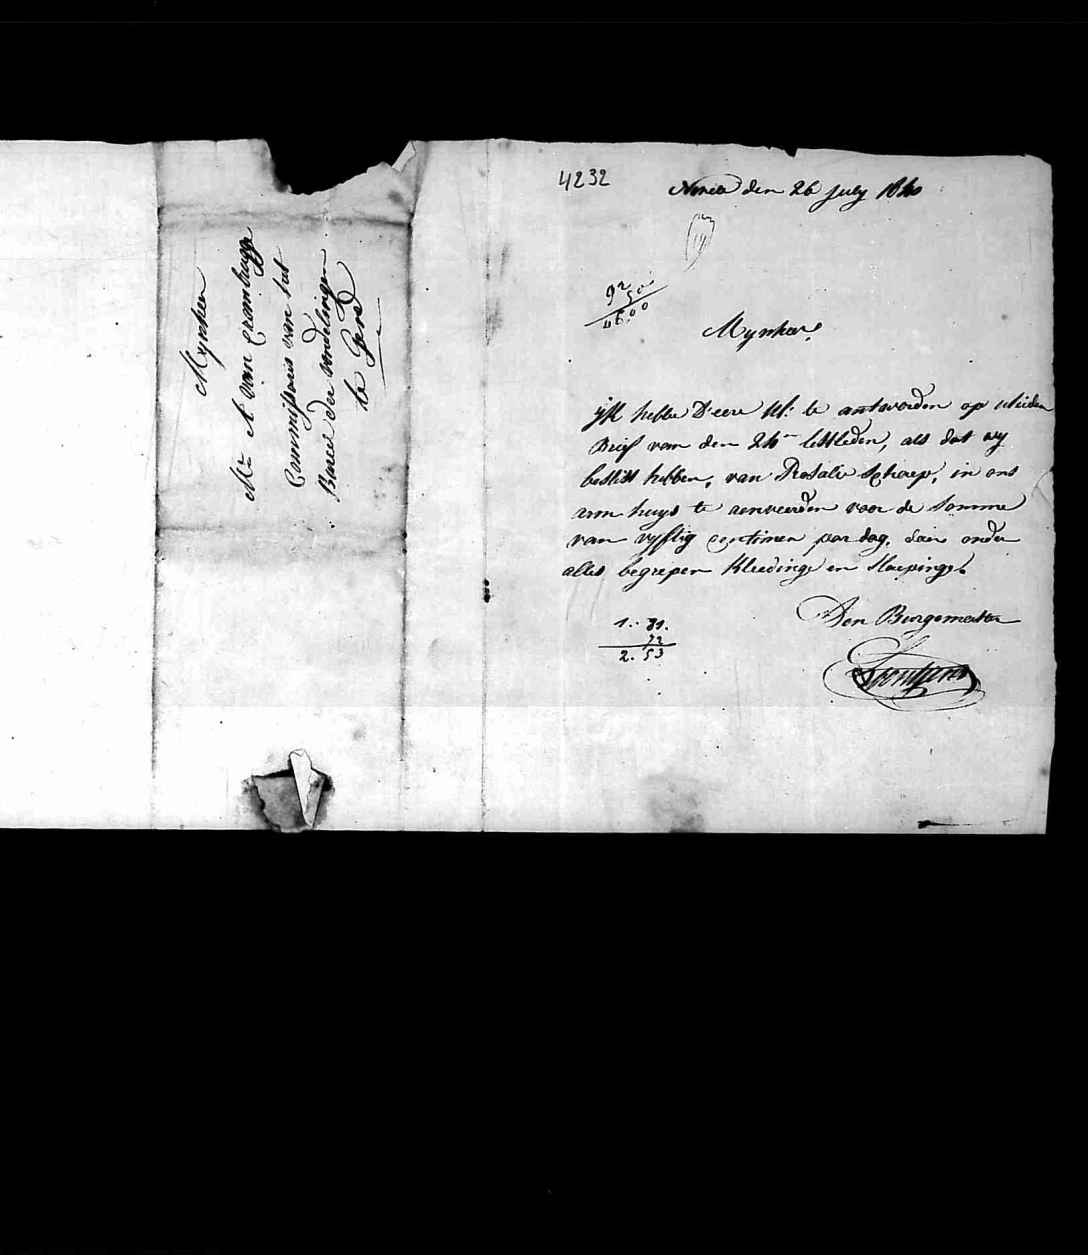 Mynheer
Mr A van Crombrugge
Commissaris van het
Bureel der vondelingen
te Gend
4232
den 26 July 1840
14
92
50
46.00
Mynheer,
Ik hebbe D'eere Ul: te antwoorden op ulieden
Brief van den 24en lestleden, als dat wy
beslist hebben, van Rosalie Schaep, in ons
arm huys te aenveerden voor de Somme
van vyftig centimen par dag, daer onder
alles begrepen Kleedinge en Slaepinge.
1.. 81.
72
2. 53
Den Burgemeester